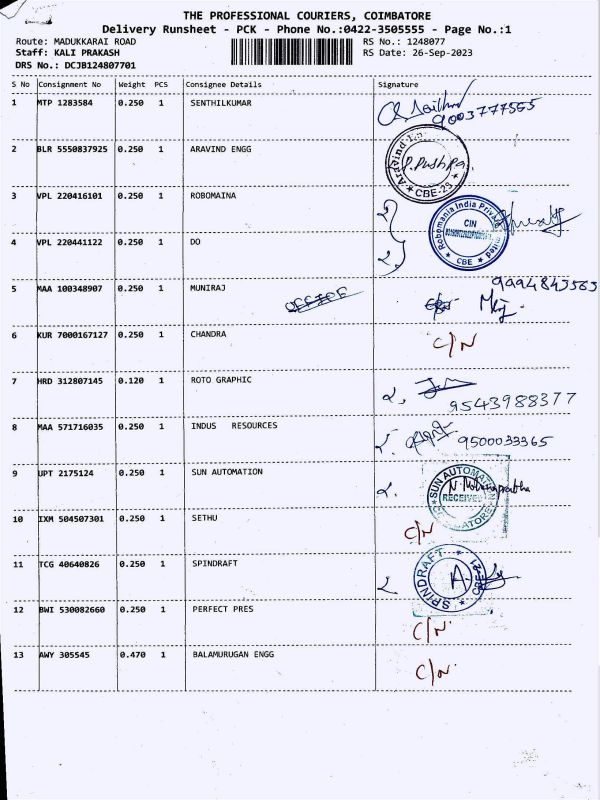 THE PROFESSIONAL COURIERS, COIMBATORE
Delivery Runsheet - PCK - Phone No.:0422-3505555 - Page No.:1
Route: MADUKKARAI ROAD RS No.: 1248077
Staff: KALI PRAKASH RS Date: 26-Sep-2023
DRS No.: DCJB124807701
S No Consignment No Weight PCS Consignee Details Signature
1 MTP 1283584 0.250 1 SENTHILKUMAR
9003777555
2 BLR 5550837925 0.250 1 ARAVIND ENGG
P. Pushpa
CBE-23
3 VPL 220416101 0.250 1 ROBOMAINA
Robomania India Private
CIN
CBE
4 VPL 220441122 0.250 1 DO
5 MAA 100348907 0.250 1 MUNIRAJ
OFFICE
9994843563
6 KUR 7000167127 0.250 1 CHANDRA C/N
7 HRD 312807145 0.120 1 ROTO GRAPHIC
9543988377
8 MAA 571716035 0.250 1 INDUS RESOURCES
9500033365
9 UPT 2175124 0.250 1 SUN AUTOMATION
SUN AUTOMATION
RECEIVED
10 IXM 504507301 0.250 1 SETHU C/N
11 TCG 40640826 0.250 1 SPINDRAFT
SPINDRAFT
CBE-21
12 BWI 530082660 0.250 1 PERFECT PRES C/N
13 AWY 305545 0.470 1 BALAMURUGAN ENGG C/N